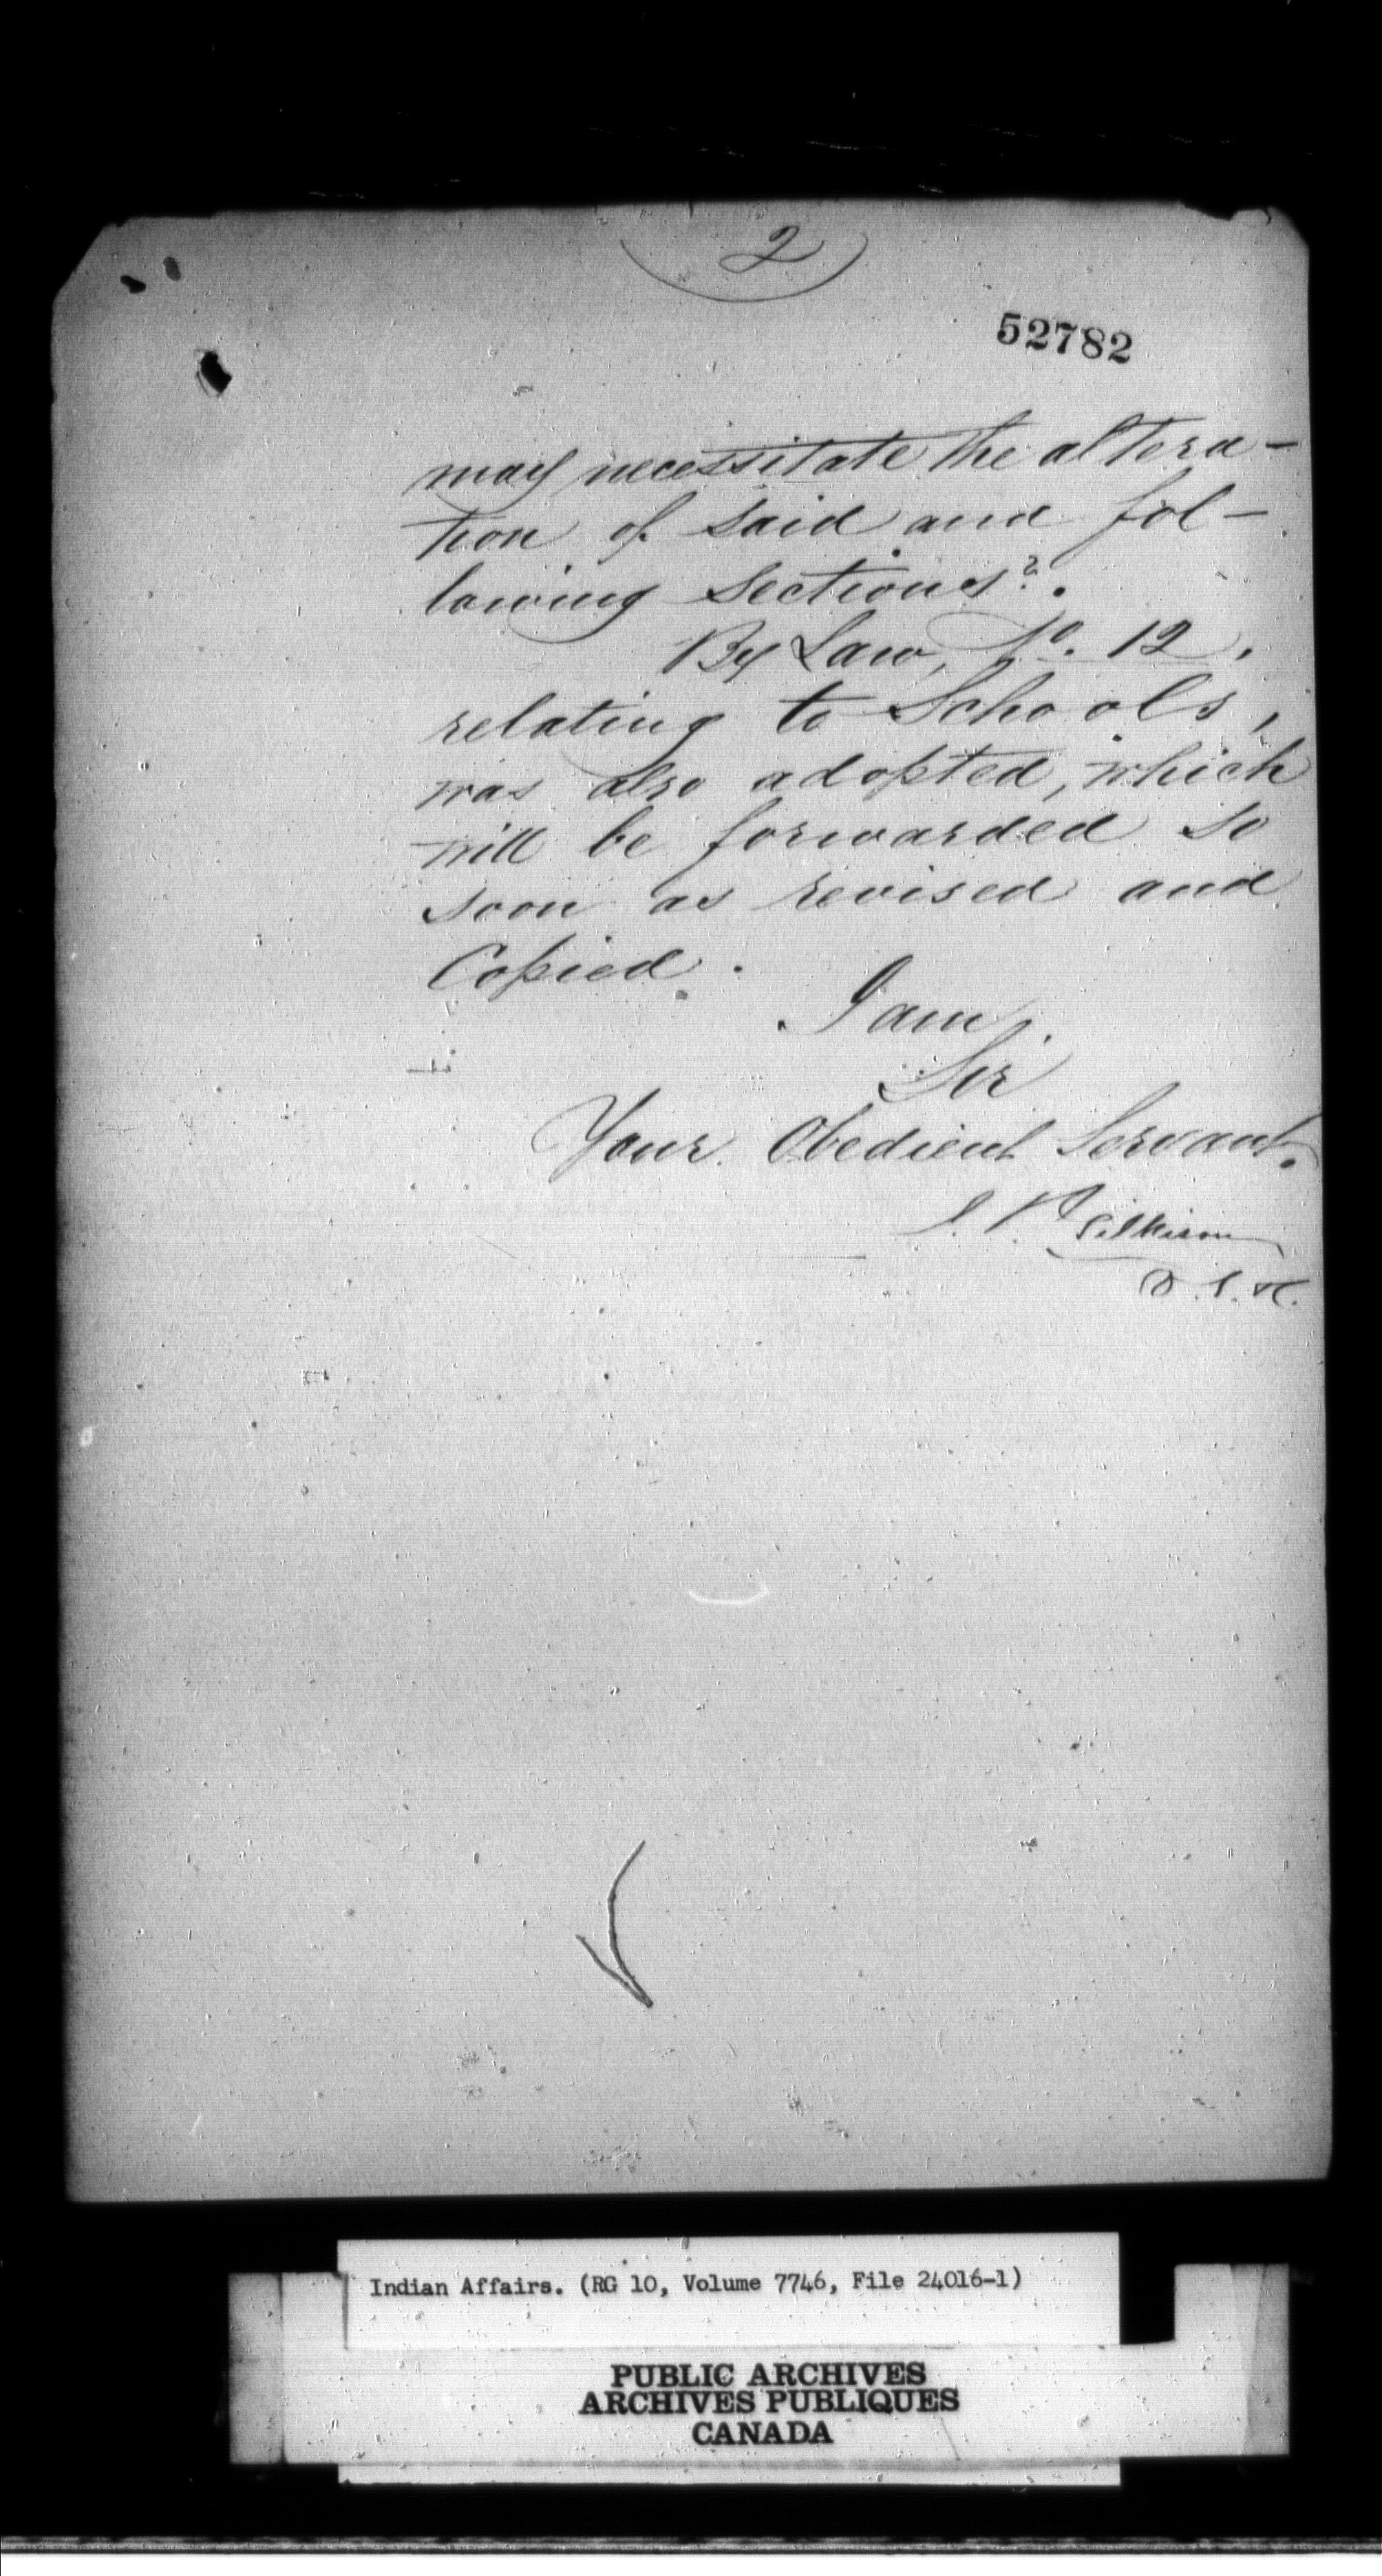 2
52782
may necessitate the altera-
tion of said and fol-
lowing Sections?.
By Law, No. 12.
relating to Schools,
was also adopted, which
will be forwarded so
soon as revised and
Copied.
I am,
Sir
Your Obedient Servant.
J. T. Gilkison
Indian Affairs. (RG 10, Volume 7746, File 24016-1)
PUBLIC ARCHIVES
ARCHIVES PUBLIQUES
CANADA